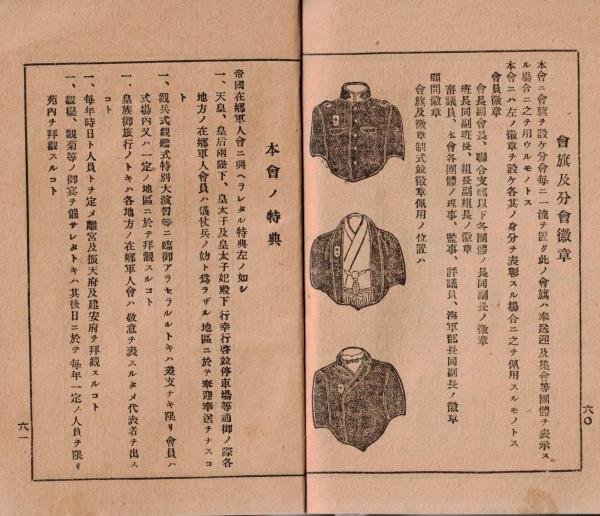 會旗及分會徽章
本會ニ會旗ヲ設ケ分會每ニ一流ヲ置ク此ノ會旗ハ奉送迎及集會等團體ヲ表示ス
ル場合ニ之ヲ用ウルモノトス
本會ニハ左ノ徽章ヲ設ケ各其ノ身分ヲ表彰スル場合ニ之ヲ佩用スルモノトス
會員徽章
會長副會長、聯合支部以下各團體ノ長同副長ノ徽章
班長同副班長、組長同副組長ノ徽章
審議員、本會各團體ノ理事、監事、評議員、海軍部長同副長ノ徽章
顧問徽章
會旗及徽章制式竝徽章佩用ノ位置ハ
六〇
本會ノ特典
帝國在鄕軍人會ニ與ヘラレタル特典左ノ如シ
一、天皇、皇后兩陛下、皇太子及皇太子妃殿下行幸行啓竝停車場等通御ノ際各
地方ノ在鄕軍人會員ハ儀仗兵ノ妨ト爲ラザル地區ニ於テ奉迎奉送ヲナスコ
ト
一、觀兵式觀艦式特別大演習等ニ臨御アラセラルルトキハ差支ナキ限リ會員ハ
式場內又ハ一定ノ地區ニ於テ拜觀スルコト
一、皇族御旅行ノトキハ各地方ノ在鄕軍人會ハ敬意ヲ表スルタメ代表者ヲ出ス
コト
一、每年時日ト人員トヲ定メ離宮及振天府及建安府ヲ拜觀スルコト
一、觀櫻、觀菊等ノ御宴ヲ催サレタトキハ其後日ニ於テ每年一定ノ人員ヲ限リ
苑內ヲ拜觀スルコト
六一